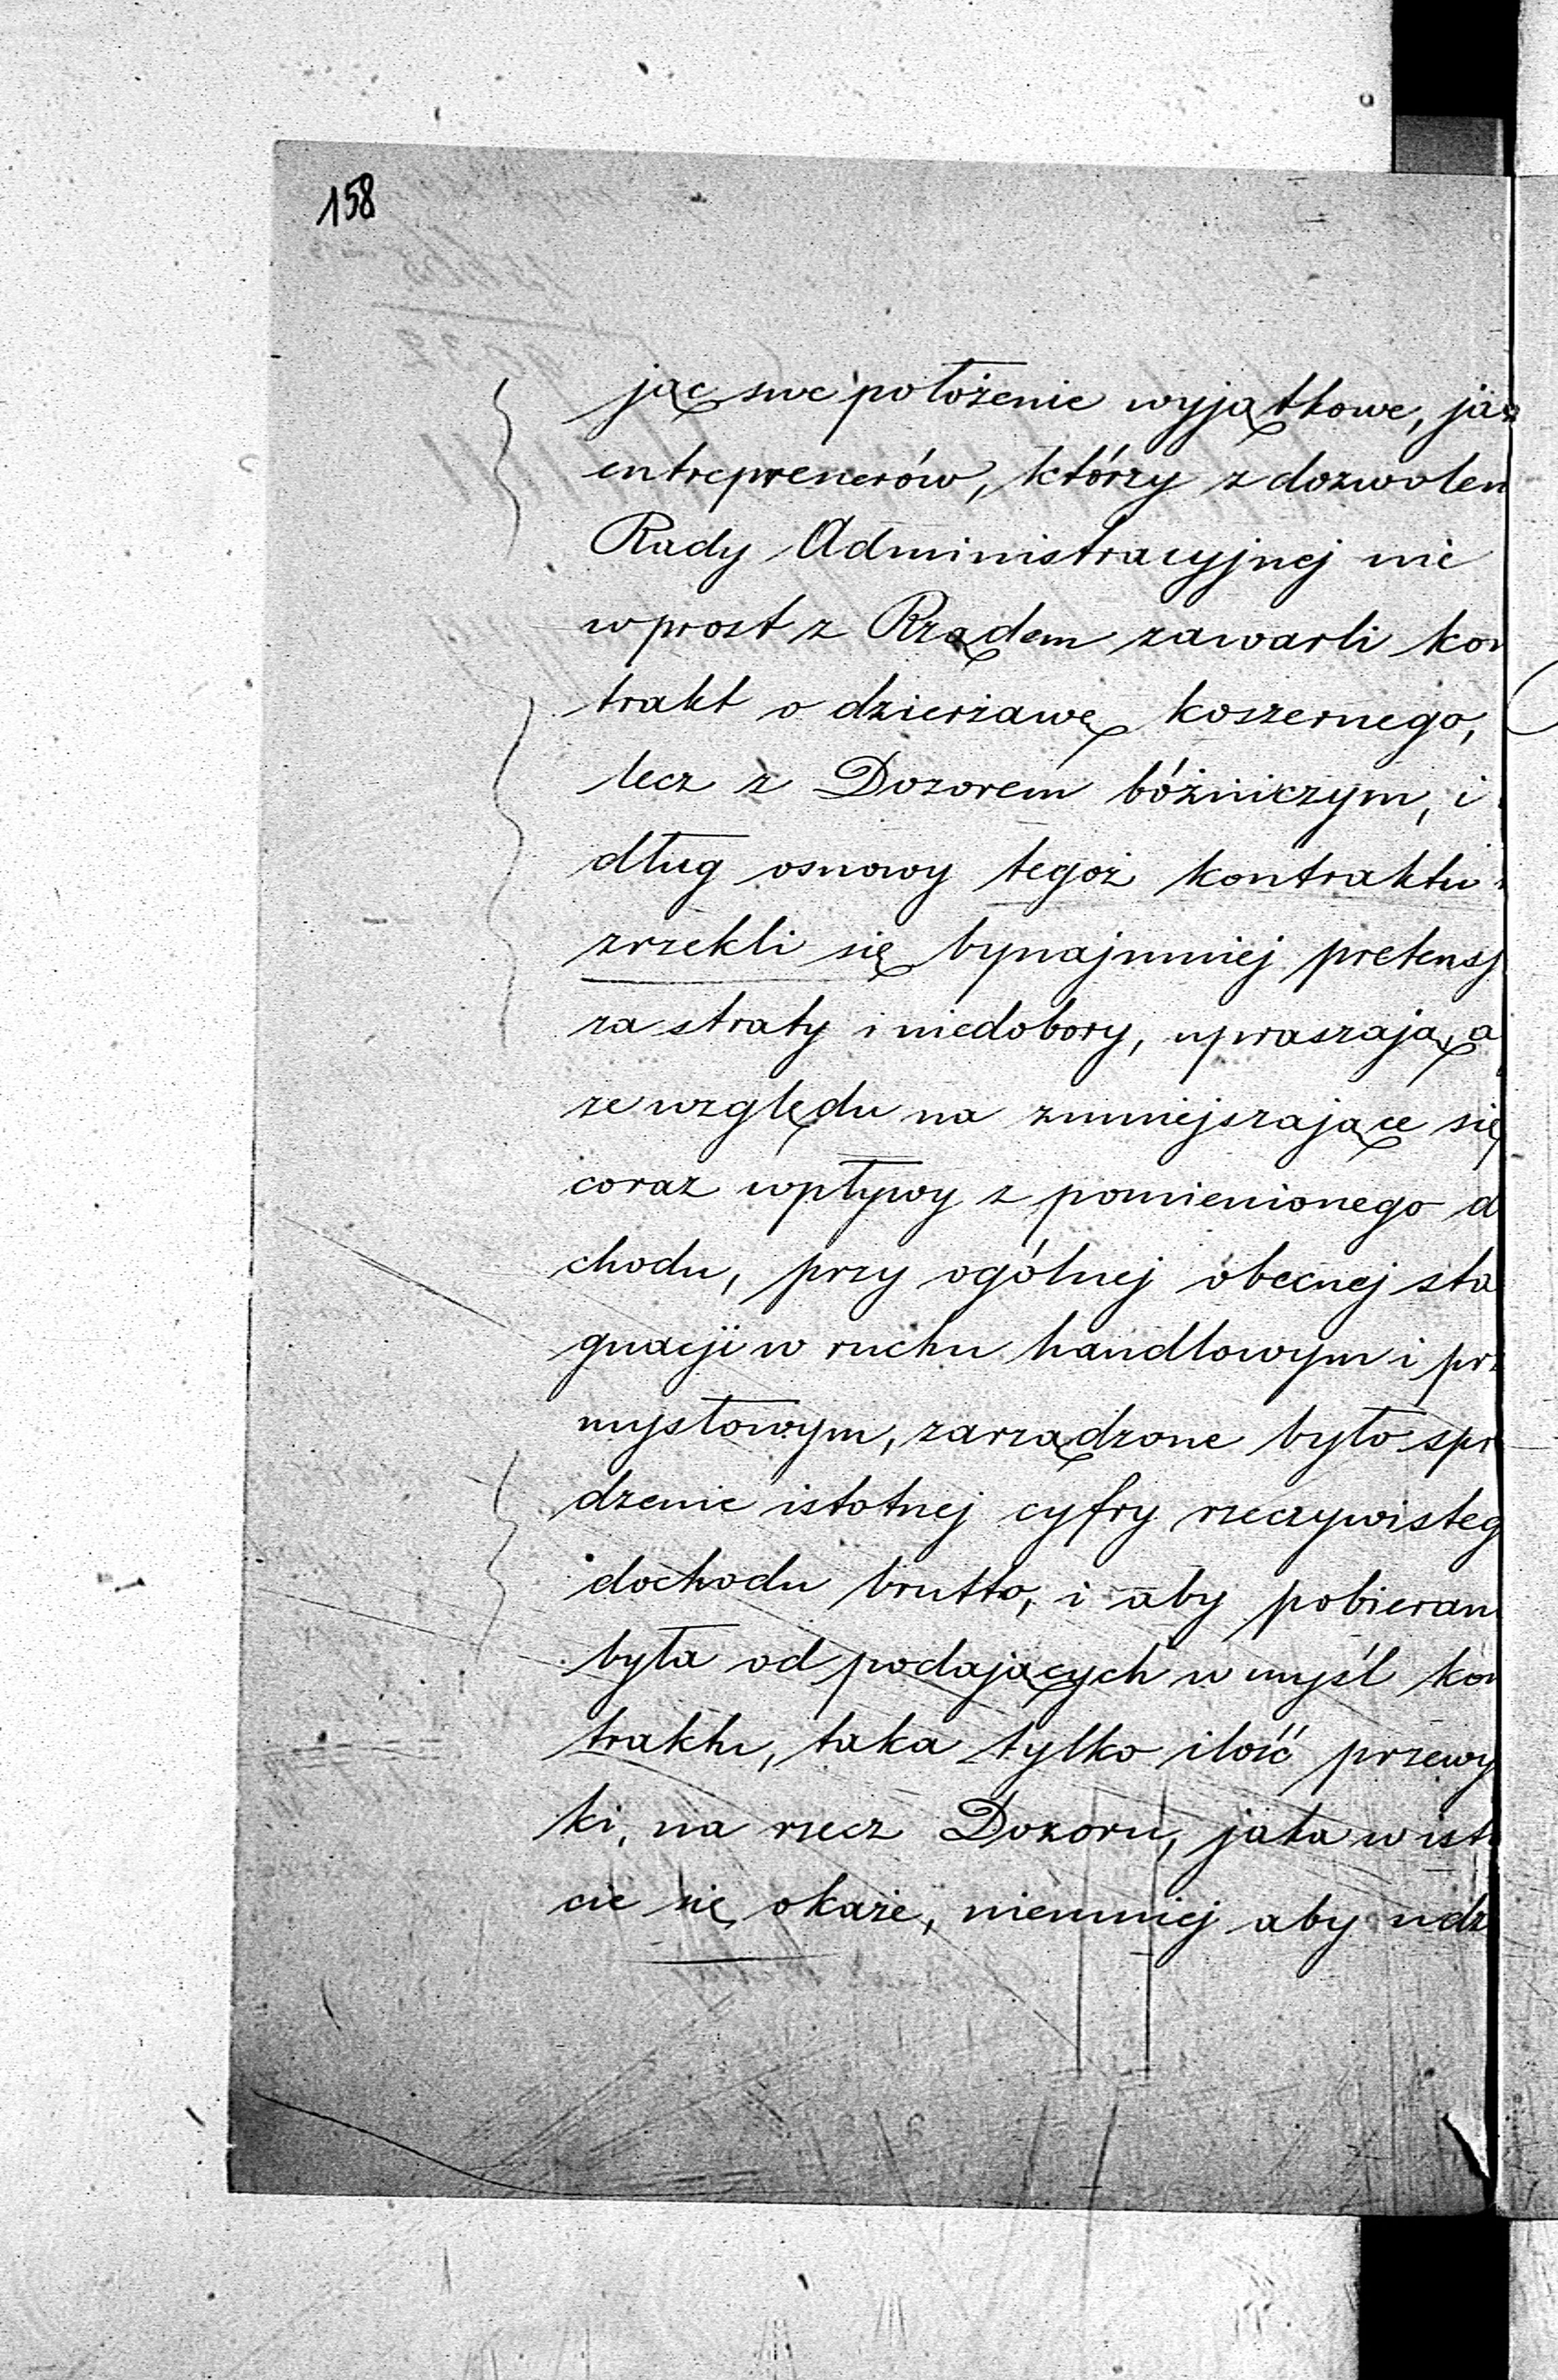 158
jąc swe położenie wyjątkowe, ja
entreprenerów, którzy z dozwolen
Rady Administracyjnej nie
wprost z Rządem zawarli kon
trakt o dzierżawę koszernego,
lecz z Dozorem bóżniczym, i
dług osnowy tegoż kontraktu
zrzekli się bynajmniej pretensj
za straty i niedobory, upraszają, a
ze względu na zmniejszające się
coraz wpływy z pomienionego d
chodu, przy ogólnej obecnej sta
gnacji w ruchu handlowym i prz
mysłowym, zarządzone było spr
dzenie istotnej cyfry rzeczywisteg
dochodu brutto, i aby pobieran
była od podających w myśl kon
traktu, taka tylko ilość przewy
ki, na rzecz Dozoru, jaka w isto
cie się okaże, niemniej aby udz